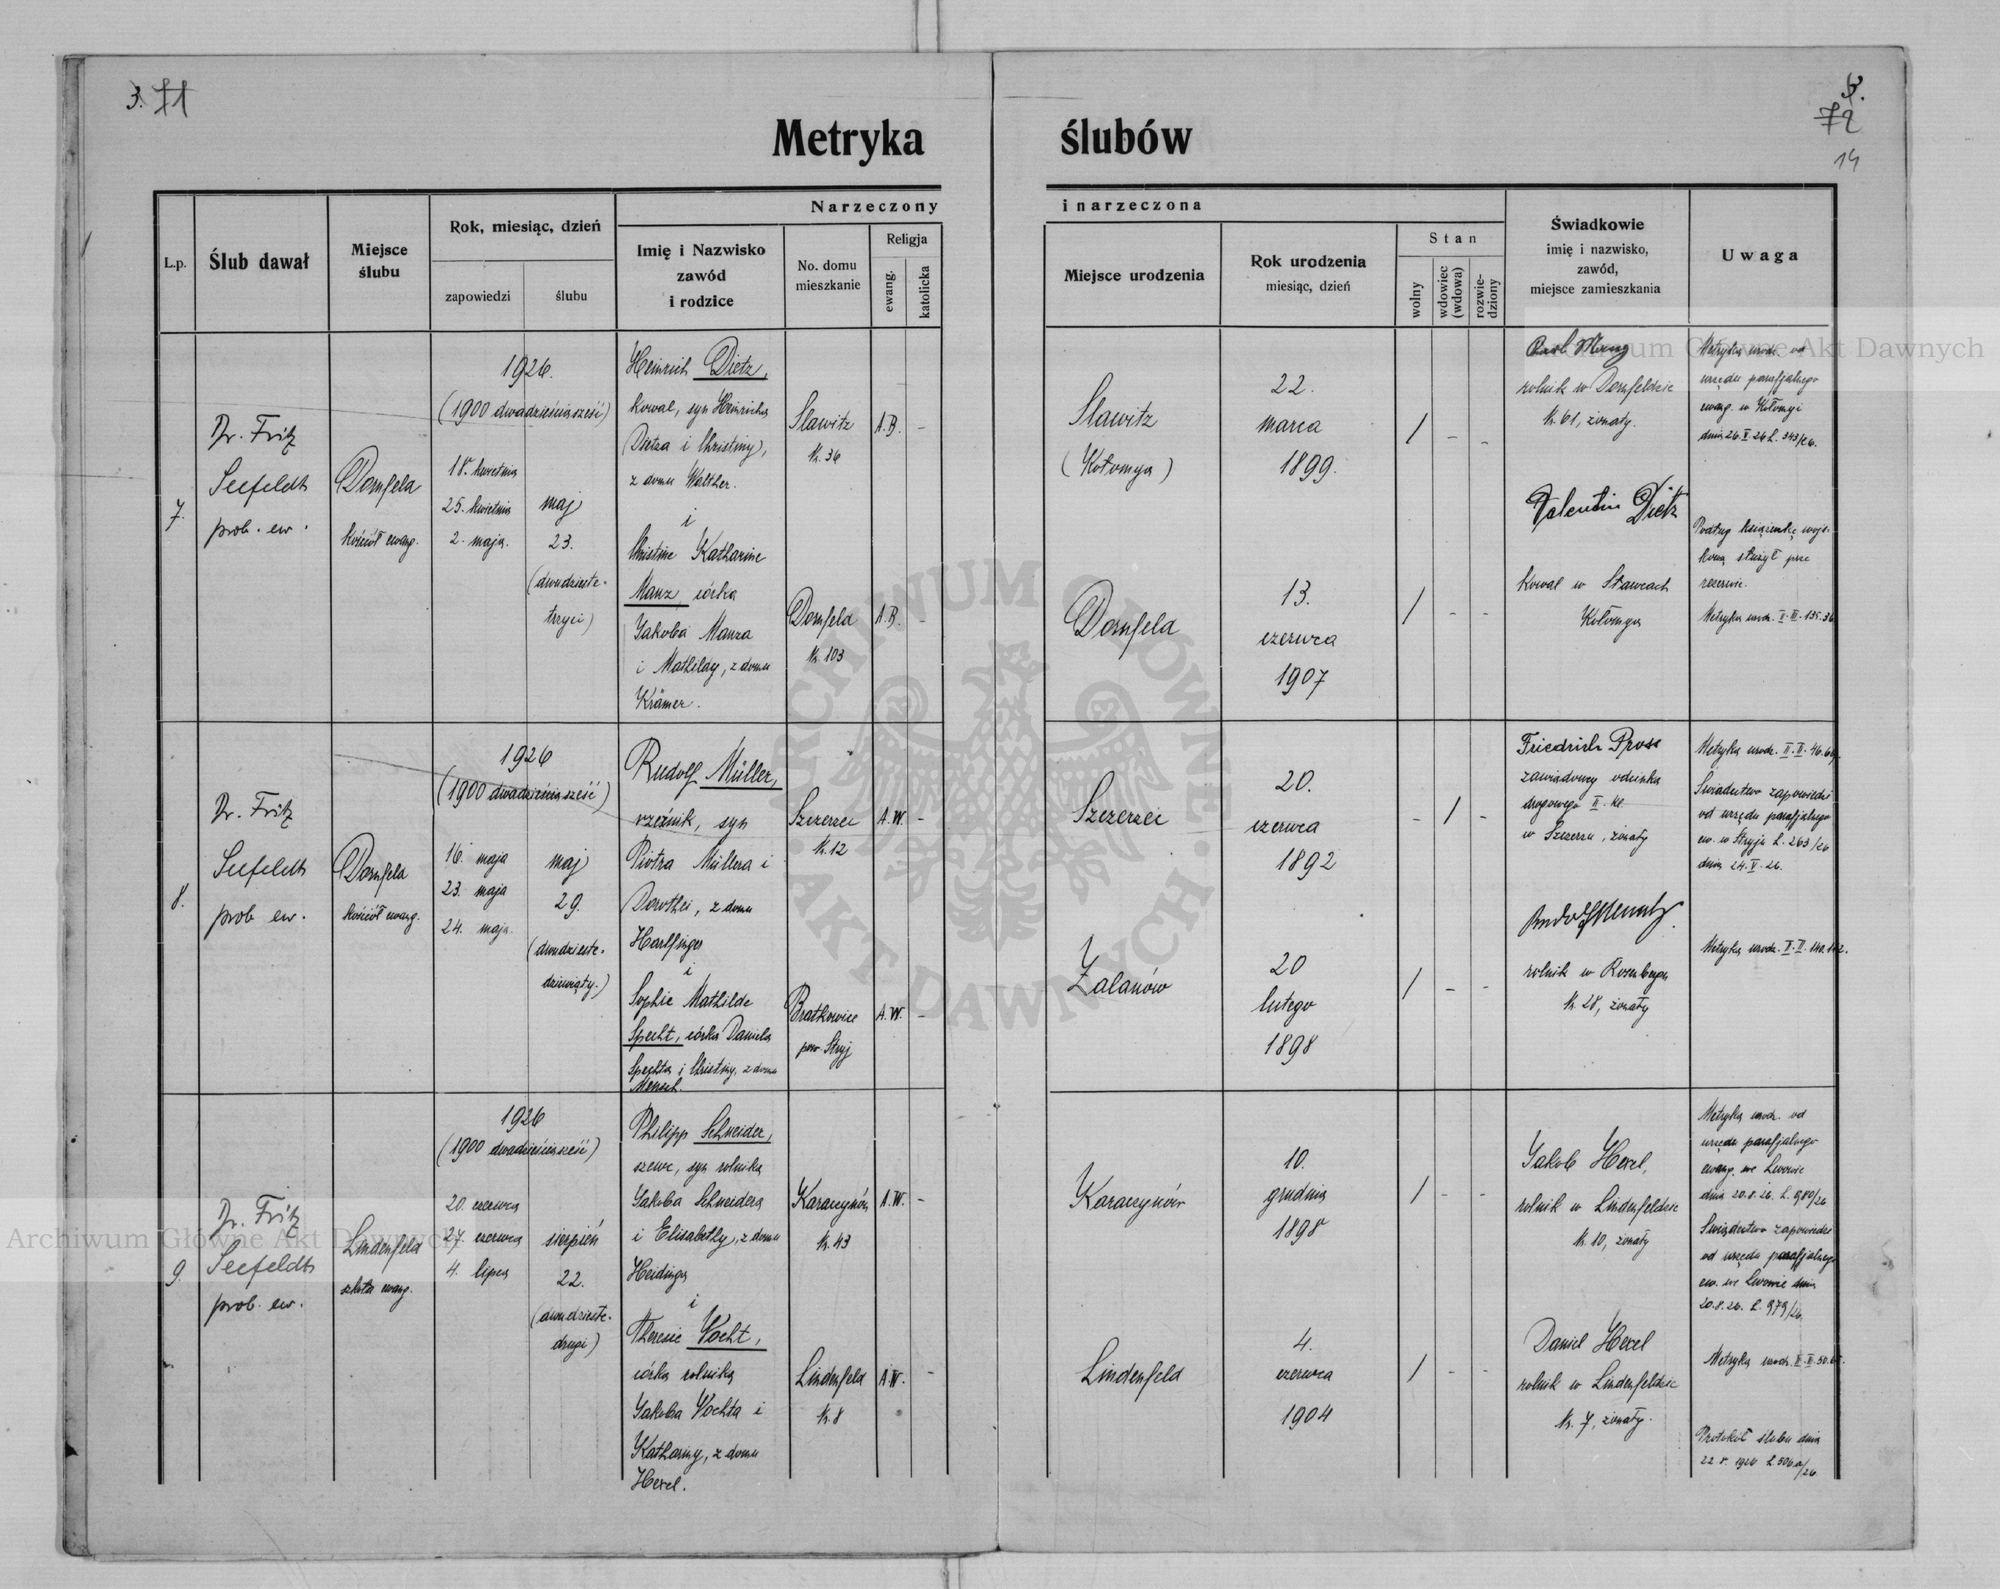 3. 71
3.
72
14
Metryka ślubów
L.p.
Ślub dawał
Miejsce
ślubu
Rok, miesiąc, dzień
zapowiedzi
ślubu
Narzeczony
Imię i Nazwisko
zawód
i rodzice
No. domu
mieszkanie
Religja
ewang.
katolicka
i narzeczona
Miejsce urodzenia
Rok urodzenia
miesiąc, dzień
Stan
wolny
wdowiec
(wdowa)
rozwie-
dziony
Świadkowie
imię i nazwisko,
zawód,
miejsce zamieszkania
Uwaga
7.
Dr. Fritz
Seefeldt
prob. ew.
Dornfeld
kościół ewang.
1926.
(1900 dwadzieścia sześć)
18. kwietnia
25. kwietnia
2. maja.
maj
23.
(dwudzieste-
trzeci)
Heinrich Dietz,
kowal, syn Heinricha
Dietza i Christiny,
z domu Walther.
i
Christine Katharine
Manz, córka
Jakoba Manza
i Mathildy, z domu
Krämer.
Slawitz
Nr. 36
A.B. -
Dornfeld
Nr. 103
A.B. -
Slawitz
(Kołomya)
22.
marca
1899.
/ - -
Dornfeld
13.
czerwca
1907
/ - -
rolnik w Dornfeldzie
Nr. 61, żonaty.
Valentin Dietz
kowal w Sławcach
Kołomya
Metryka urodz. od
urzędu parafjalnego
ewang. w Kołomyi
dnia 26. V. 26 L. 343/26.
Podług książeczki wojs-
kowej służył prze
rezerwie.
Metryka urodz. V. III. 135. 36
8.
Dr. Fritz
Seefeldt
prob. ew.
Dornfeld
kościół ewang.
1926
(1900 dwadzieścia sześć)
16. maja
23. maja
24. maja.
maj
29.
(dwudzieste-
dziewiąty.)
Rudolf Müller,
rzeźnik, syn
Piotra Müllera i
Dorothei, z domu
Harlfinger
i
Sophie Mathilde
Specht, córka Daniela
Spechta i Christiny, z domu
Mensch.
Szczerzec
Nr. 12
A.W. -
Bratkowice
pow Stryj
A.W. -
Szczerzec
20.
czerwca
1892
- / -
Zalanów
20
lutego
1898
/ - -
Friedrich Pross
zawiadowcy odcinka
drogowego II. kl.
w Szczerzcu, żonaty
rolnik w Rosenbergu
Nr. 28, żonaty
Metryka urodz. II. II. 46.
Świadectwo zapowiedzi
od urzędu parafjalnego
ew. w Stryju L. 263/26
dnia 24. V. 26.
Metryka urodz. V. II. 140. 142.
9.
Dr. Fritz
Seefeldt
prob. ew.
Lindenfeld
szkoła ewang.
1926
(1900 dwadzieścia sześć)
20. czerwca
27. czerwca
4. lipca
sierpień
22.
(dwudzieste-
drugi)
Philipp Schneider,
szewc, syn rolnika
Jakoba Schneidera
i Elisabethy, z domu
Heidinger
i
Theresie Wocht,
córka rolnika
Jakoba Wochta i
Kathariny, z domu
Hexel.
Karaczynów
Nr. 43
A.W. -
Lindenfeld
Nr. 8
A.W. -
Karaczynów
10.
grudnia
1898
/ - -
Lindenfeld
4.
czerwca
1904
/ - -
Jakob Hexel,
rolnik w Lindenfeldzie
Nr. 10, żonaty
Daniel Hexel
rolnik w Lindenfeldzie
Nr. 7, żonaty.
Metryka urodz. od
urzędu parafjalnego
ewang. we Lwowie
dnia 20. 8. 26. L. 980/26
Świadectwo zapowiedzi
od urzędu parafjalnego
ew. we Lwowie dnia
20. 8. 26. L. 979/26.
Metryka urodz. V. II. 50.
Protokół ślubu dnia
22 8. 1926 L. 506a/26.
Archiwum Główne Akt Dawnych
Archiwum Główne Akt Dawnych
ARCHIWUM GŁÓWNE
AKT DAWNYCH